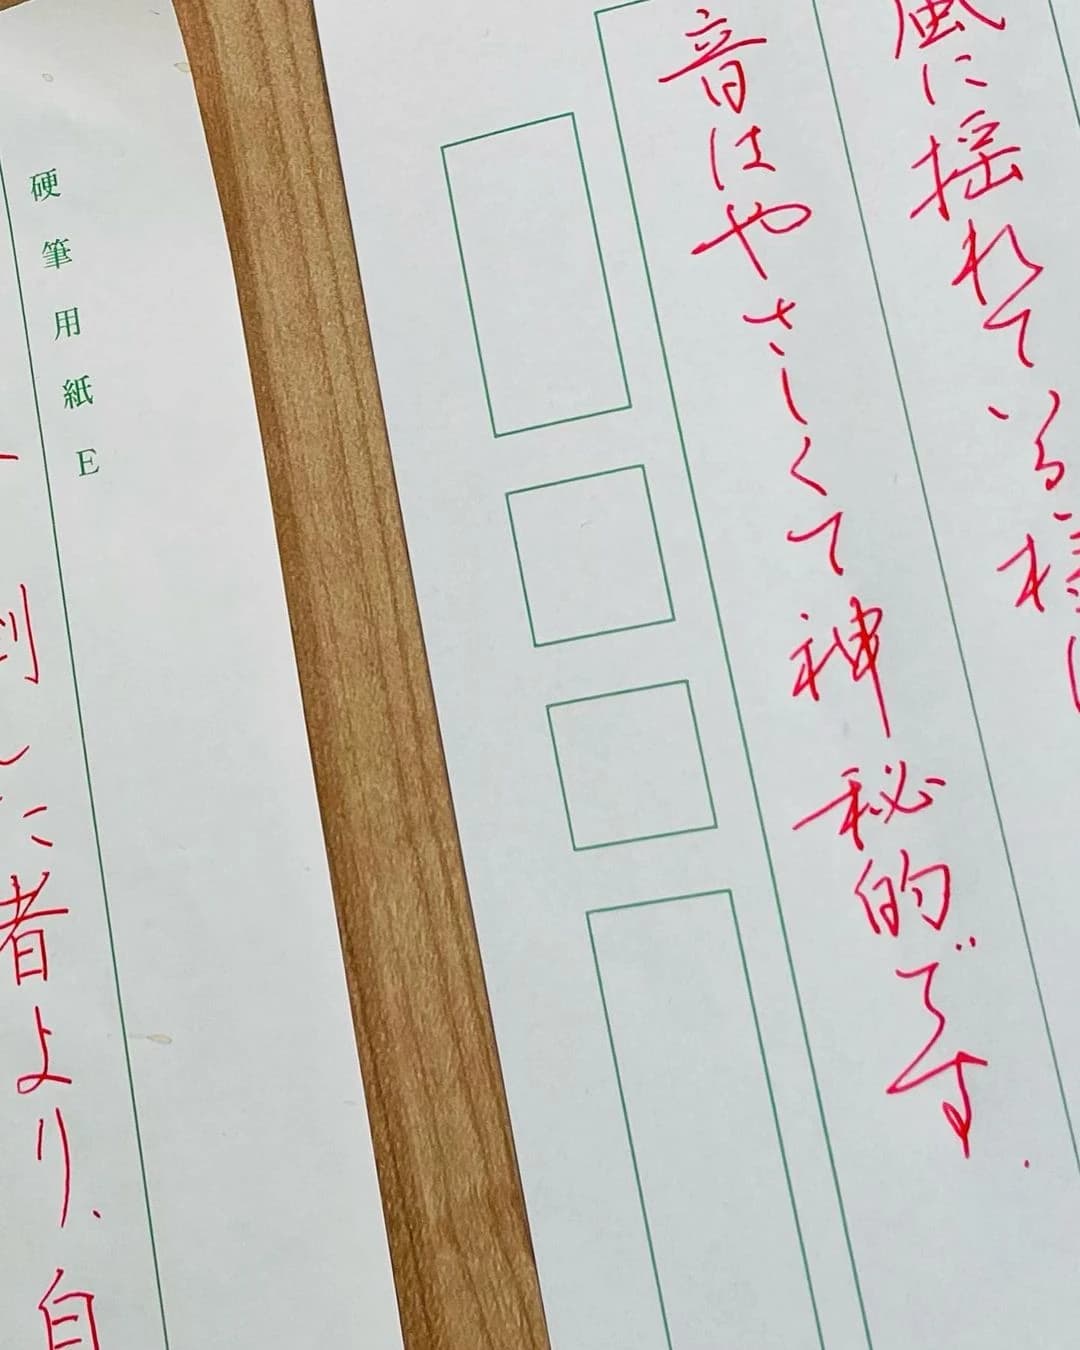 風に揺れている様は
音はやさしくて神秘的です.
硬筆用紙E
した者より、自